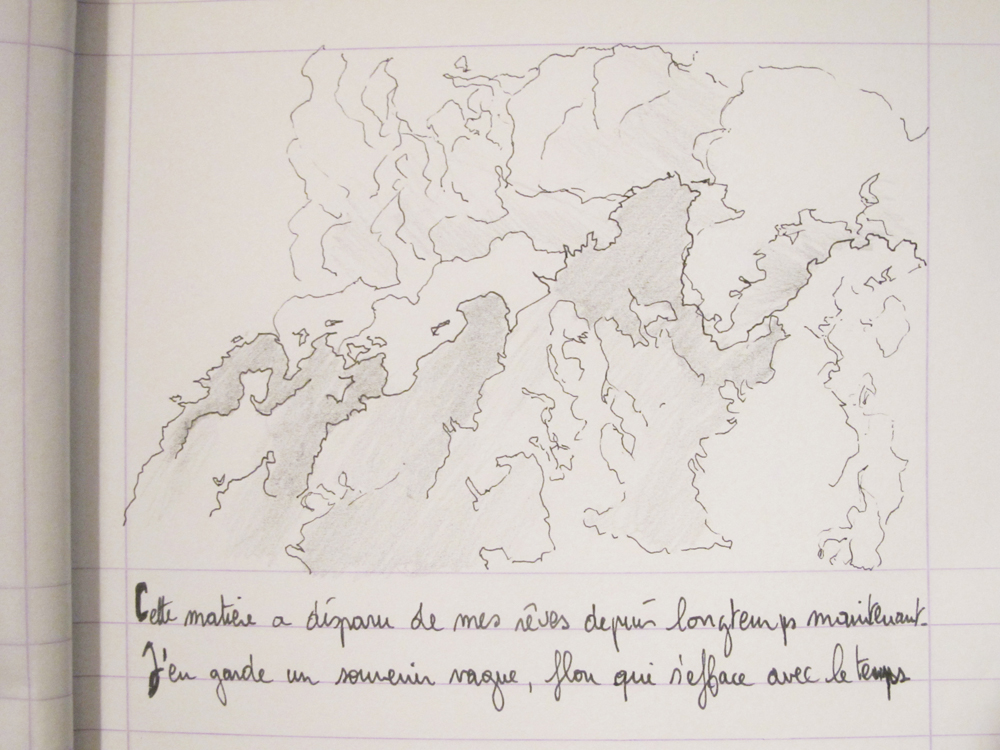 Cette matière a disparu de mes rêves depuis longtemps maintenant.
J'en garde un souvenir vague, flou qui s'efface avec le temps